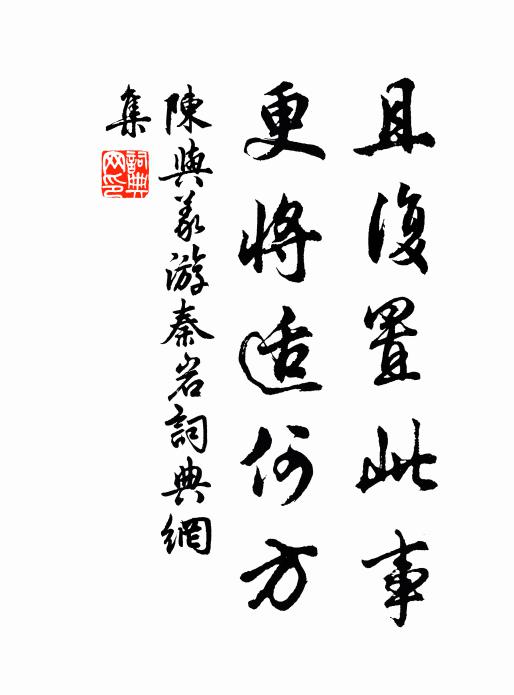 且復置此事
更將适何方
陳與義游秦岩詞典網
集
詞典
网印